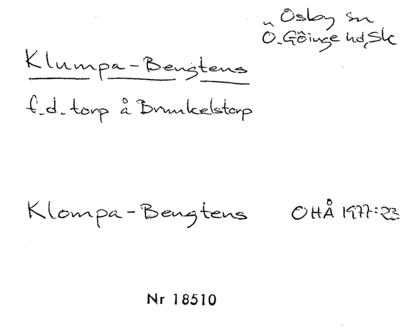 Osby sn
Ö. Göinge hd, Sk
Klumpa-Bengtens
f.d. torp å Brunkelstorp
Klompa-Bengtens OHÅ 1977:23
Nr 18510